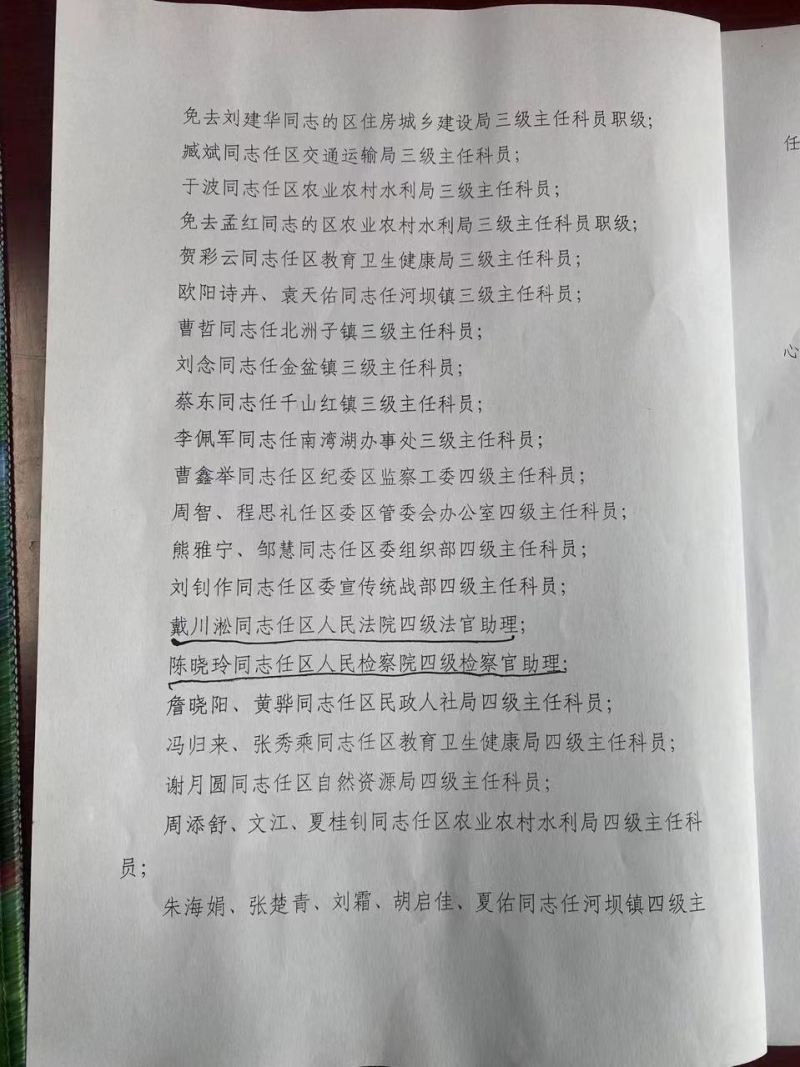 免去刘建华同志的区住房城乡建设局三级主任科员职级;
臧斌同志任区交通运输局三级主任科员;
于波同志任区农业农村水利局三级主任科员;
免去孟红同志的区农业农村水利局三级主任科员职级;
贺彩云同志任区教育卫生健康局三级主任科员;
欧阳诗卉、袁天佑同志任河坝镇三级主任科员;
曹哲同志任北洲子镇三级主任科员;
刘念同志任金盆镇三级主任科员;
蔡东同志任千山红镇三级主任科员;
李佩军同志任南湾湖办事处三级主任科员;
曹鑫举同志任区纪委区监察工委四级主任科员;
周智、程思礼任区委区管委会办公室四级主任科员;
熊雅宁、邹慧同志任区委组织部四级主任科员;
刘钊作同志任区委宣传统战部四级主任科员;
戴川淞同志任区人民法院四级法官助理;
陈晓玲同志任区人民检察院四级检察官助理;
詹晓阳、黄骅同志任区民政人社局四级主任科员;
冯归来、张秀乘同志任区教育卫生健康局四级主任科员;
谢月圆同志任区自然资源局四级主任科员;
周添舒、文江、夏桂钊同志任区农业农村水利局四级主任科
员;
朱海娟、张楚青、刘霜、胡启佳、夏佑同志任河坝镇四级主
任
心